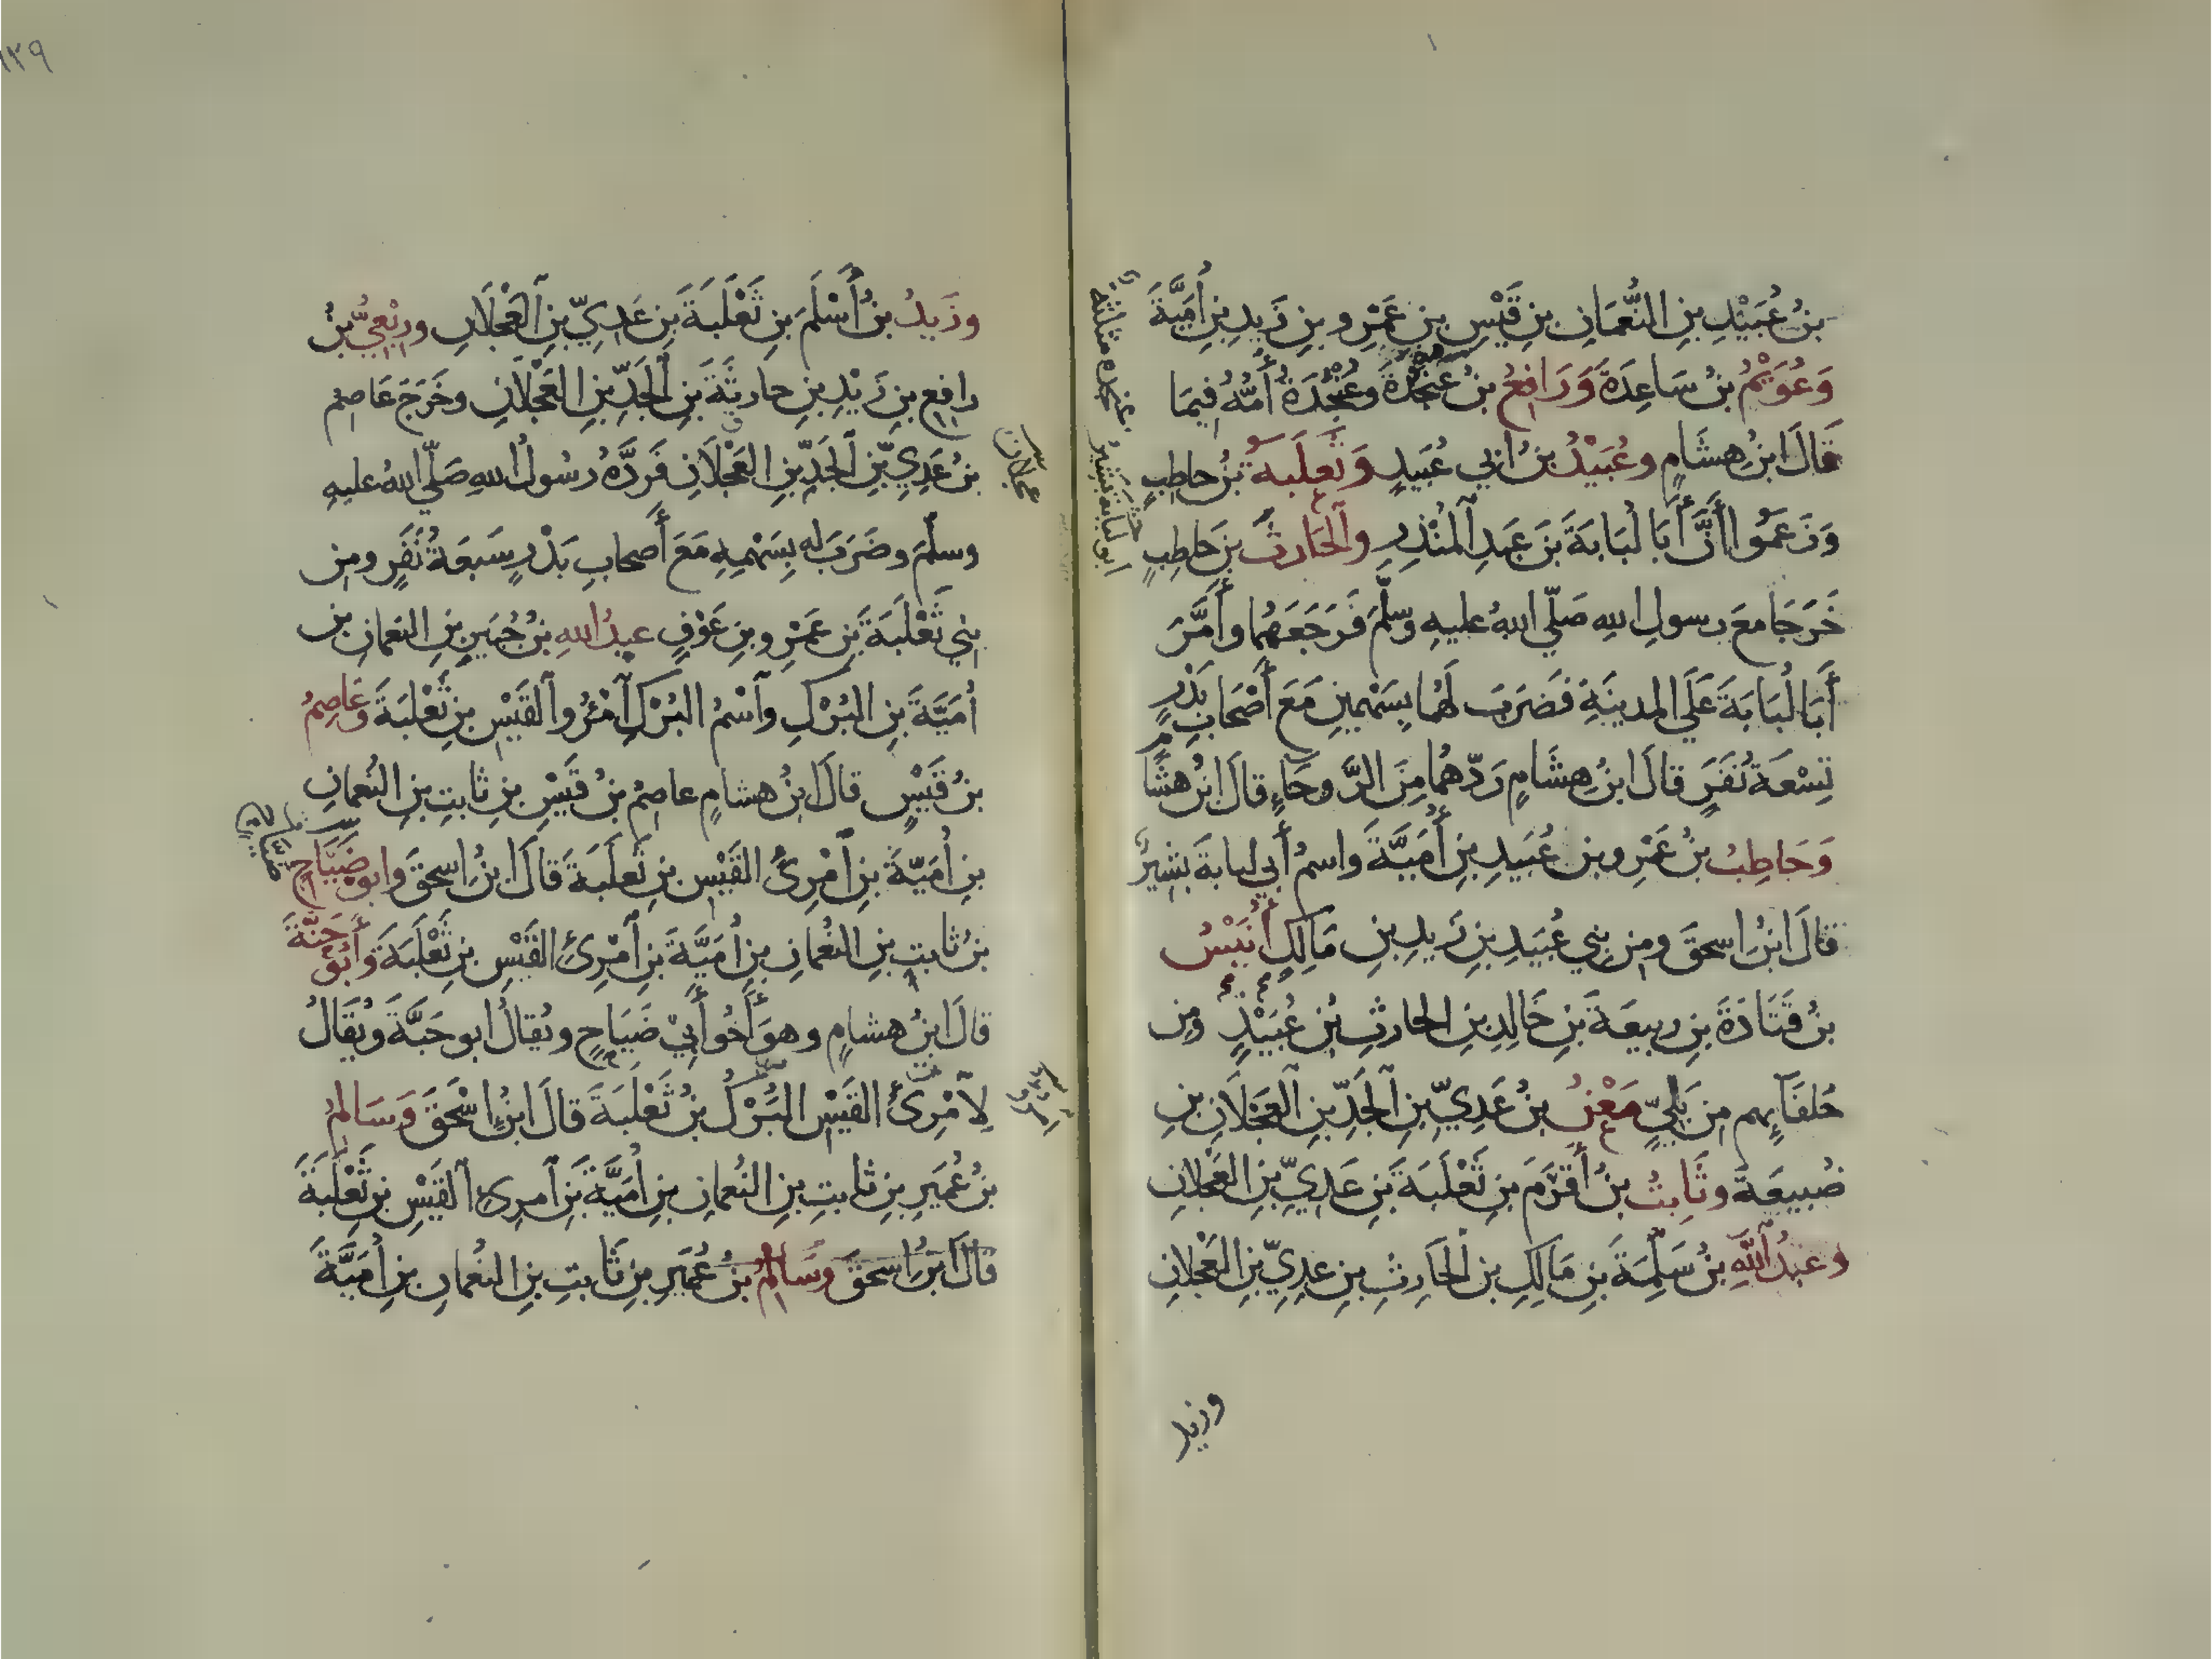 بنُ عُبَيْدِ بنِ النُّعمَانِ بنِ قَيْسِ بنِ عَمْرِو بنِ زَيدِ بنِ أُمَيَّةَ
وَعُوَيْمُ بنُ سَاعِدَةَ وَرَافِعُ بنُ عَنْجَدَةَ وعُنْجُدَةُ أُمُّهُ فِيمَا
قَالَ ابنُ هِشَامٍ وعُبَيْدُ بنُ ابي عُبَيدٍ وَثَعلَبةُ بنُ حاطِبٍ
وَزَعَمُوا أَنَّ أَبَا لُبَابَةَ بنَ عَبدِ المُنْذِرِ والحَارِثَ بنَ حَاطِبٍ
خَرَجَا معَ رسولِ اللهِ صَلّي اللهُ عليهِ وسلّمَ فَرَجَعَهُما وأَمَّرَ
أَبَا لُبَابَةَ عَلَي المدينَةِ فَضَرَبَ لَهُما بِسَهْمينِ مَعَ أَصْحَابِ بَدْرٍ
تِسْعَةُ نَفَرٍ قالَ ابنُ هِشَامٍ رَدّهُما مِنَ الرَّوحَاءِ قالَ ابنُ هشَامٍ
وَحَاطِبُ بنُ عَمْرِو بنِ عُبَيدِ بنِ أُمَيَّةَ واسمُ أَبي لبابةَ بَشِيرٌ
قالَ ابنُ اسحقَ ومِن بني عُبَيدِ بنِ زَيدِ بنِ مَالِكٍ أُنَيْسُ
بنُ قَتَادَةَ بنِ ربيعَةَ بنِ خَالِدِ بنِ الحارثِ بنِ عُبَيْدٍ ومِن
حُلفَآئِهم مِن بَلِيٍّ مَعْنُ بنُ عَدِيِّ بنِ الجَدِّ بنِ العَجْلَانِ بنِ
ضُبيعَةَ وثَابِتُ بنُ أَقْرَمَ بنِ ثَعْلَبَةَ بنِ عَدِيِّ بنِ العَجْلانِ
وعَبدُ اللهِ بنُ سَلَمَةَ بنِ مَالِكِ بنِ الحَارِثِ بنِ عدِيِّ بنِ العَجْلانِ
وزيد
١٢٩
وزَيدُ بنُ أَسْلَمَ بنِ ثَعْلَبَةَ بنِ عَدِيِّ بنِ العَجْلَانِ ورِبْعِيُّ بنُ
رافِعِ بنِ زَيْدِ بنِ حارِثَةَ بنِ الجَدِّ بنِ العَجْلَانِ وخَرَجَ عَاصِمُ
بنُ عَدِيِّ بنِ الجَدِّ بنِ العَجْلَانِ فَرَدَّهُ رسُولُ اللهِ صَلّي اللهُ عليهِ
وسلّمَ وضَرَبَ له بِسَهْمِهِ مَعَ أَصحابِ بَدْرٍ سَبعَةُ نَفَرٍ ومِن
بني ثَعْلَبَةَ بنِ عَمْرِو بنِ عَوْفٍ عبدُ اللهِ بنُ جُبَيرِ بنِ النعمانِ بنِ
أُمَيَّةَ بنِ البُرْكِ وآسْمُ البُرْكِ آمْرُؤُ القَيْسِ بنِ ثَعْلَبَةَ وعَاصِمُ
بنُ قَيْسٍ قالَ ابنُ هشامٍ عاصِمُ بنُ قَيْسِ بنِ ثابتِ بنِ النُعمانِ
بنِ أُمَيّةَ بنِ آمْرِئِ القَيْسِ بنِ ثَعلَبَةَ قالَ ابنُ اسحقَ وابو ضَيَّاحٍ
بنُ ثابتِ بنِ النُعْمانِ بنِ أُمَيَّةَ بنِ آمْرِئِ القَيْسِ بنِ ثَعْلَبَةَ وأَبُو حَنَّةَ
قالَ ابنُ هشامٍ وهوَ أَخُو أَبِيْ ضَيَاحٍ ويُقالُ ابو حَبَّةَ ويُقَالُ
لِآمْرِئِ القَيْسِ البُرَكُ بنُ ثَعْلَبَةَ قالَ ابنُ إسْحَقَ وَسَالمُ
بنُ عُمَيرِ بنِ ثابتِ بنِ النُعمانِ بنِ أُمَيَّةَ بنِ آمرِئِ القَيْسِ بنِ ثَعْلَبَةَ
قالَ ابنُ اسحقَ وسَالمُ بنُ عُمَيرِ بنِ ثَابتِ بنِ النُعمانِ بنِ أُمَيَّةَ